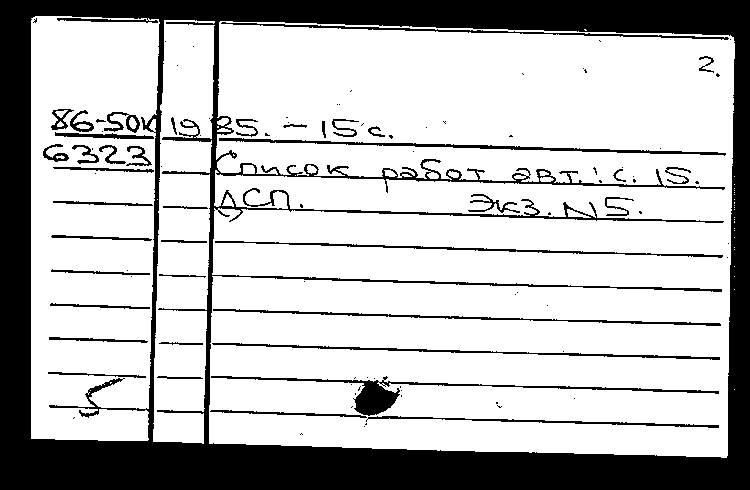 2.
86-50к 1985. – 15 с.
6323 Список работ авт.: с. 15.
ДСП. Экз. N 5.
5